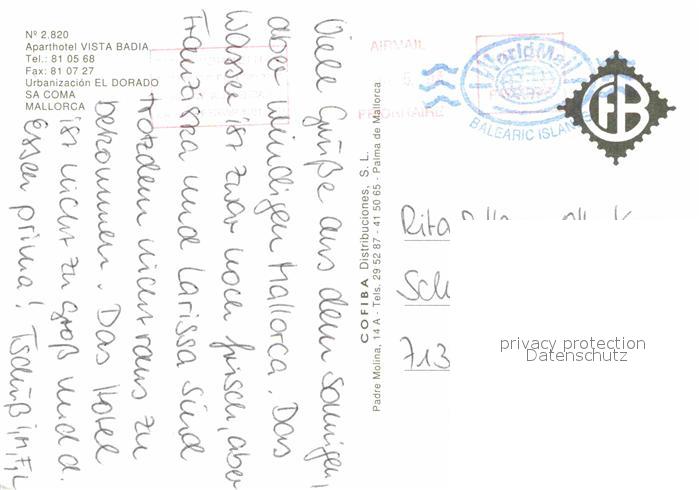 Nº 2.820
Aparthotel VISTA BADIA
Tel.: 81 05 68
Fax: 81 07 27
Urbanización EL DORADO
SA COMA
MALLORCA
Viele Grüße aus dem sonnigen,
aber windigen Mallorca. Das
Wasser ist zwar noch frisch, aber
Franziska und Larissa sind
trotzdem nicht raus zu
bekommen. Das Hotel
ist nicht zu groß und d.
Essen prima! Tschüß
COFIBA Distribuciones, S. L.
Padre Molina, 14 A - Tels. 29 52 87 - 41 50 65 - Palma de Mallorca
AIRMAIL
PRIORITAIRE
WorldMail
BALEARIC ISLAN
Rita
Sch
713
privacy protection
Datenschutz